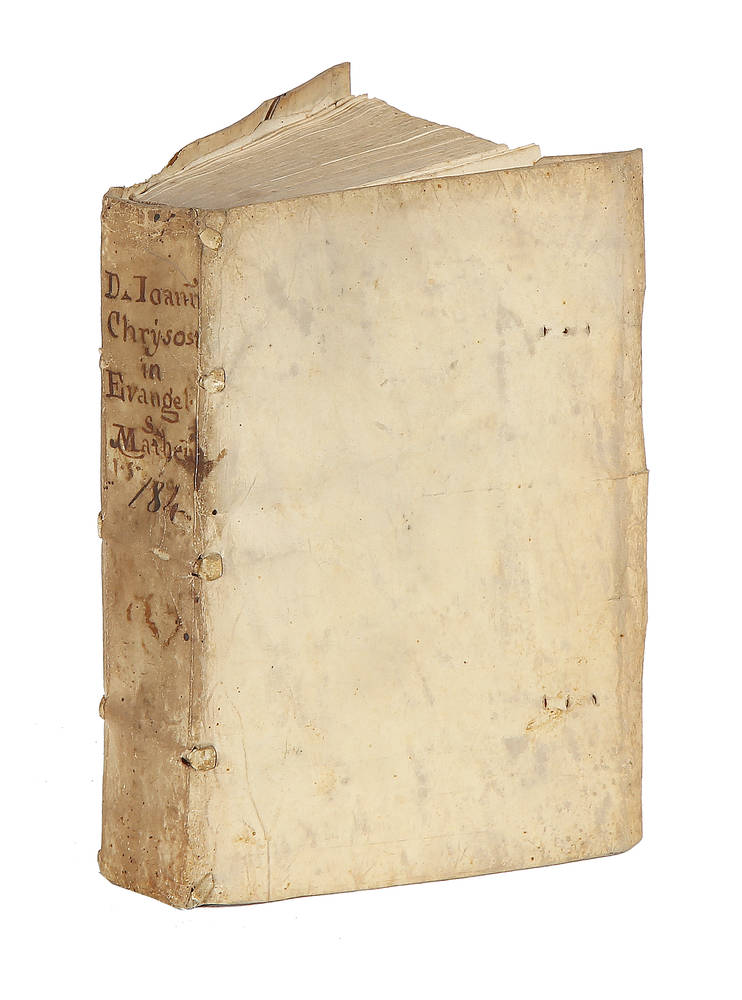 D. Ioann̄
Chrysos
in
Evangel.
S.
Mathei
184